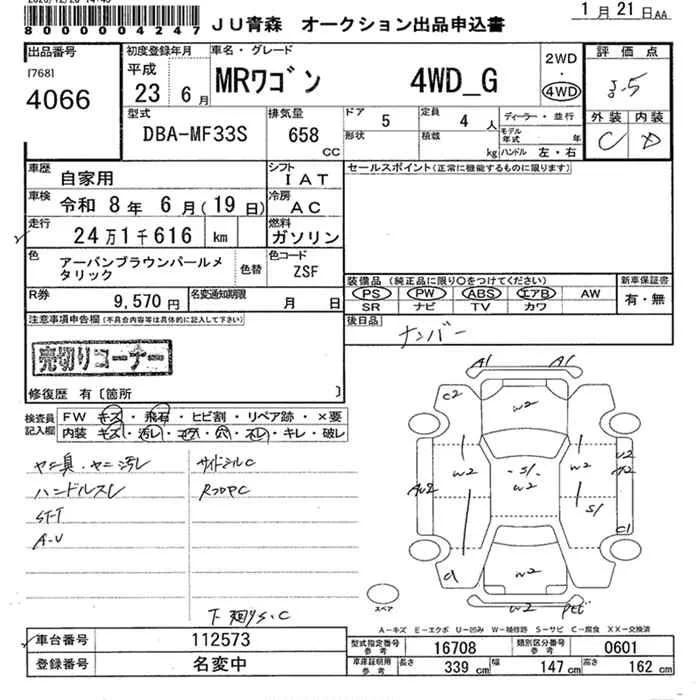 8000004247
JU青森 オークション出品申込書
1月21日AA
出品番号
[768]
4066
初度登録年月
平成
23 6月
車名・グレード
MRワゴン 4WD_G
2WD
・
4WD
評価点
3.5
外装 内装
C D
型式
DBA-MF33S
排気量
658
CC
ドア
5
定員
4 人
形状
積載
kg
ディーラー・並行
モデル年式 年
ハンドル 左・右
車歴
自家用
シフト
IAT
セールスポイント(正常に機能するものに限ります)
車検
令和 8年 6月(19日)
冷房
AC
走行
24万1千616 km
燃料
ガソリン
色
アーバンブラウンパールメタリック
色替
色コード
ZSF
R券
9,570円
名変通知期限
月 日
装備品 (純正品に限り○をつけてください)
PS PW ABS エアB AW
SR ナビ TV カワ
新車保証書
有・無
注意事項申告欄(不具合内容等は具体的に記入して下さい)
後日品
ナンバー
売切りコーナー
修復歴 有〔箇所 〕
検査員記入欄
FW キズ・飛石・ヒビ割・リペア跡・×要
内装 キズ・汚レ・コゲ・穴・スレ・キレ・破レ
ヤニ臭・ヤニ汚レ
ハンドルスレ
サイドシルC
RフロアC
下廻りS.C
A1 A1
C2
W2
W2
S1
W2
W2
U2
A2
AU2
S1
C1
C1
W2
W2
スペア
A-キズ E-エクボ U-凹み W-補修跡 S-サビ C-腐食 XX-交換済
車台番号
112573
登録番号
名変中
型式指定番号
参考
16708
類別区分番号
参考
0601
車庫証明用
参考
長さ
339 cm
幅
147 cm
高さ
162 cm